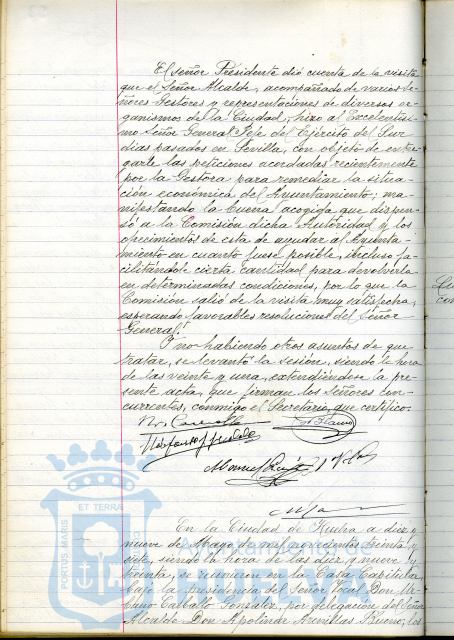 El señor Presidente dió cuenta de la visita
que el Señor Alcalde, acompañado de varios Se-
ñores Gestores y representaciones de diversos or-
ganismos de la Ciudad, hizo al Excelentísi-
mo Señor General Jefe del Ejército del Sur
dias pasados en Sevilla, con objeto de entre-
garle las peticiones acordadas recientemente
por la Gestora para remediar la situa-
ción económica del Ayuntamiento; ma-
nifestando la buena acogida que dispen-
só a la Comisión dicha Autoridad y los
ofrecimientos de esta de ayudar al Ayunta-
miento en cuanto fuese posible, incluso fa-
cilitándole cierta cantidad para devolverla
en determinadas condiciones, por lo que la
Comisión salió de la visita muy satisfecha,
esperando favorables resoluciones del Señor
General.
Y no habiendo otros asuntos de que
tratar, se levantó la sesión, siendo la hora
de las veinte y una, extendiéndose la pre-
sente acta, que firman los Señores con-
currentes, conmigo el Secretario, que certifico.
En la Ciudad de Huelva a diez y
nueve de Mayo de mil novecientos treinta y
siete, siendo la hora de las diez y nueve y
treinta, se reunieron en la Casa Capitular,
bajo la presidencia del Señor local Don Ur-
bano Carballo González, por delegación del Señor
Alcalde Don Apolinar Arenillas Bueno, los
PORTUS MARIS ET TERRAE
Ayuntamiento de
HUELVA